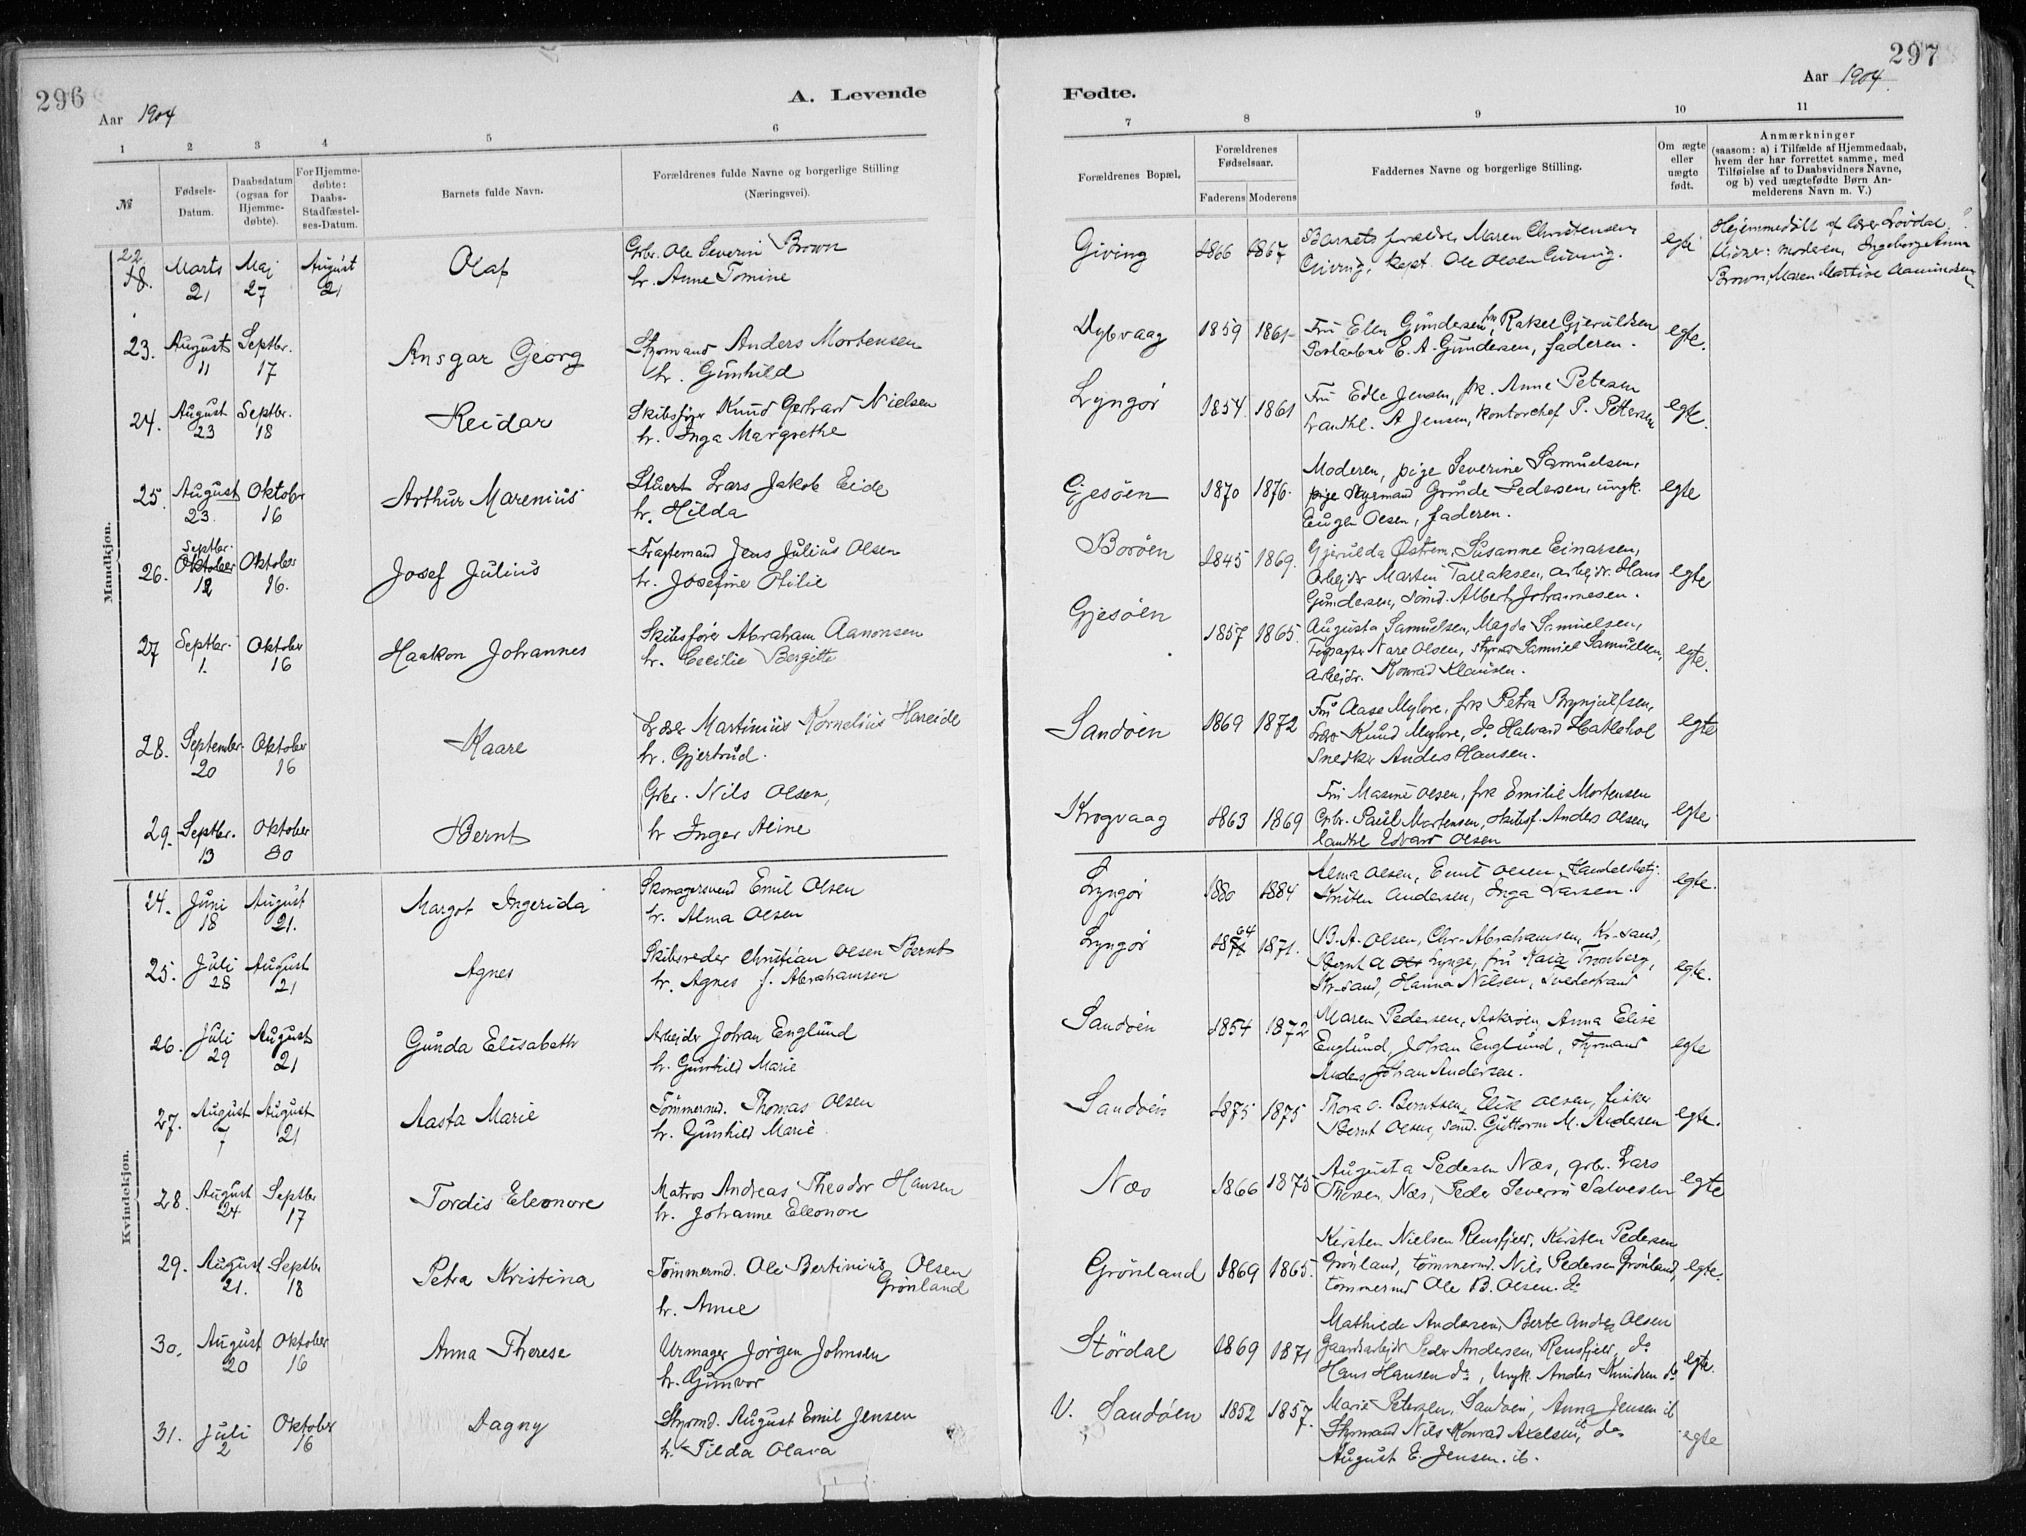 296
Aar 1904
A. Levende
1 2 3 4 5 6
№
Fødsels-
Datum.
Daabsdatum
(ogsaa for
Hjemme-
døbte).
For Hjemme-
døbte:
Daabs-
Stadfæstel-
ses-Datum.
Barnets fulde Navn.
Forældrenes fulde Navne og borgerlige Stilling
(Næringsvei).
Mandkjøn.
22.
18. Marts 21 Maj 27 August 21 Olaf
Gbr. Ole Severin Brown
h. Anne Tomine
23. August 11 Septbr. 17 Ansgar Georg
Styrmand Anders Mortensen
h. Gunhild
24. August 23 Septbr. 18 Reidar
Skibsfører Knud Gerhard Nielsen
h. Inga Margrethe
25. August 23. Oktober 16 Arthur Marenius
Stuert Lars Jakob Eide
h. Hilda
26. Septbr. Oktober 12 Oktober 16. Josef Julius
Fragtemand Jens Julius Olsen
h. Josefine Otilie
27 Septbr. 1. Oktober 16 Haakon Johannes
Skibsfører Abraham Aanonsen
h. Cecilie Bergitte
28. September 20 Oktober 16 Kaare
Martinius Kornelius Hareide
h. Gjertrud.
29. Septbr. 13 Oktober 30 Bernt
Gbr. Nils Olsen,
h Inger Aline
Kvindekjøn.
24. Juni 18 August 21. Margot Ingerida
Skomagersvend Emil Olsen
h. Alma Olsen
25. Juli 28 August 21 Agnes
Skibsreder Christian Olsen Bernt
h. Agnes f. Abrahamsen
26. Juli 29 August 21 Gunda Elisabeth
Arbejder Johan Englund
h. Gunhild Marie
27. August 7 August 21 Aasta Marie
Tømmermd. Thomas Olsen
h. Gunhild Marie
28. August 24 Septbr 17 Tordis Eleonore
Matros Andreas Theodor Hansen
h. Johanne Eleonore
29. August 21. Septbr 18 Petra Kristina
Tømmermd. Ole Bertinius Olsen
Grønland
h. Anne
30. August 20 Oktober 16 Anna Therese
Urmager Jørgen Johnsen
h. Gunvor
31. Juli 2 Oktober 16 Dagny
Styrmd. August Emil Jensen
h. Tilda Olava
297
Aar 1904.
Fødte.
7 8 9 10 11
Forældrenes Bopæl.
Forældrenes
Fødselsaar.
Faderens Moderens
Faddernes Navne og borgerlige Stilling.
Om ægte
eller
uægte
født.
Anmærkninger
(saasom: a) i Tilfælde af Hjemmedaab,
hvem der har forrettet samme, med
Tilføielse af to Daabsvidners Navne,
og b) ved uægtefødte Børn An-
melderens Navn m. V.)
Giving 1866 1867
Barnets forældre, Maren Christensen
Giving, kapt. Ole Olsen Giving.
egte
Hejemmedøbt af lærer Løvdal
Vidner: moderen, Ingeborg Anna
Brown, Maren Martine Aamundsen
Dybvaag 1859 1861
Fru Elen Gundersen, fru Rakel Gjeruldsen
Postaabner E. A. Gundersen, faderen.
egte.
Lyngør 1854. 1861
Fru Edle Jensen, frk. Anne Petersen
Landhl. A Jensen, kontorchef P. Pettersen
egte.
Gjesøen 1870 1876.
Moderen, pige Severine Samuelsen,
pige Styrmand Gunde Pedersen, ungk.
Eugen Olsen, faderen.
egte
Borøen 1845 1869.
Gjerulda Østrem, Susanne Einarsen,
Arbejdr Martin Tallaksen, arbejdr. Hans
Gundersen, sømd. Albert Johannesen.
egte
Gjesøen 1857 1865.
Augusta Samuelsen, Magda Samuelsen,
Nare Olsen, styrmd Samuel Samuelsen,
Arbejdr. Konrad Klausen.
egte.
Sandøen 1869 1872
Fru Aase Myhre, frk Petra Brynjulfsen,
Knud Myhre, do Halvard Hatlehol
Snedker Anders Hansen.
egte
Krogvaag 1863 1869
Fru Maxine Olsen, frk Emilie Mortensen
Gbr. Paul Mortensen, skibsf. Anders Olsen,
landhl Edvard Olsen
egte.
Lyngør 1880 1884
Alma Olsen, Emil Olsen, Handelsbetj.
Knuten Andersen, Inga Larsen.
egte.
Lyngør 1871 64 1871.
B. A. Olsen, Chr. Abrahamsen, Kr.sand,
Bernt A Lynge, fru Kaia Tromberg,
Kr.sand, Hanna Nilsen, Tvedestrand
egte.
Sandøen 1854 1872
Maren Pedersen, Askerøen, Anna Elise
Englund, Johan Englund, styrmand
Anders Johan Andersen.
egte
Sandøen 1875 1875
Thora O. Berntsen, Elise Olsen, fisker
Bernt Olsen, sømd. Guttorm M. Andersen
egte.
Næs 1866 1875
Augusta Pedersen Næs, gbr. Lars
Thorsen, Næs, Peder Severin Salvesen
egte
Grønland 1869 1865.
Kirsten Nielsen Rensfjeld, Kirsten Pedersen
Grønland, tømmermd. Nils Pedersen Grønland,
tømmermd Ole B. Olsen. do
egte.
Størdal 1869 1871
Mathilde Andersen, Berte Andrea Olsen
Gaardarbejdr Peder Andersen, Rensfjeld, do
Hans Hansen do, Ungk. Anders Knudsen do
egte.
V. Sandøen 1852 1857.
Marie Petersen, Sandøen, Anna Jensen ib
Styrmand Nils Konrad Axelsen, do
August E. Jensen. ib.
egte